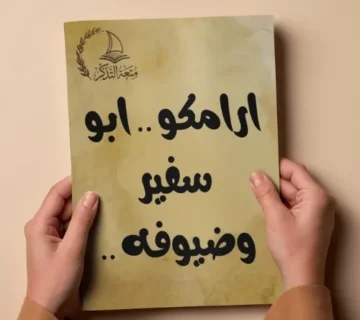 متعة التذكر
ارامكو .. ابو
سفير
وضيوفه ..